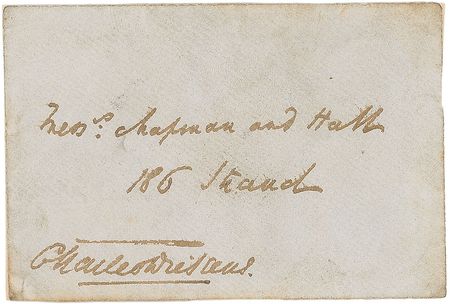 Mess.rs Chapman and Hall
186 Strand
Charles Dickens.